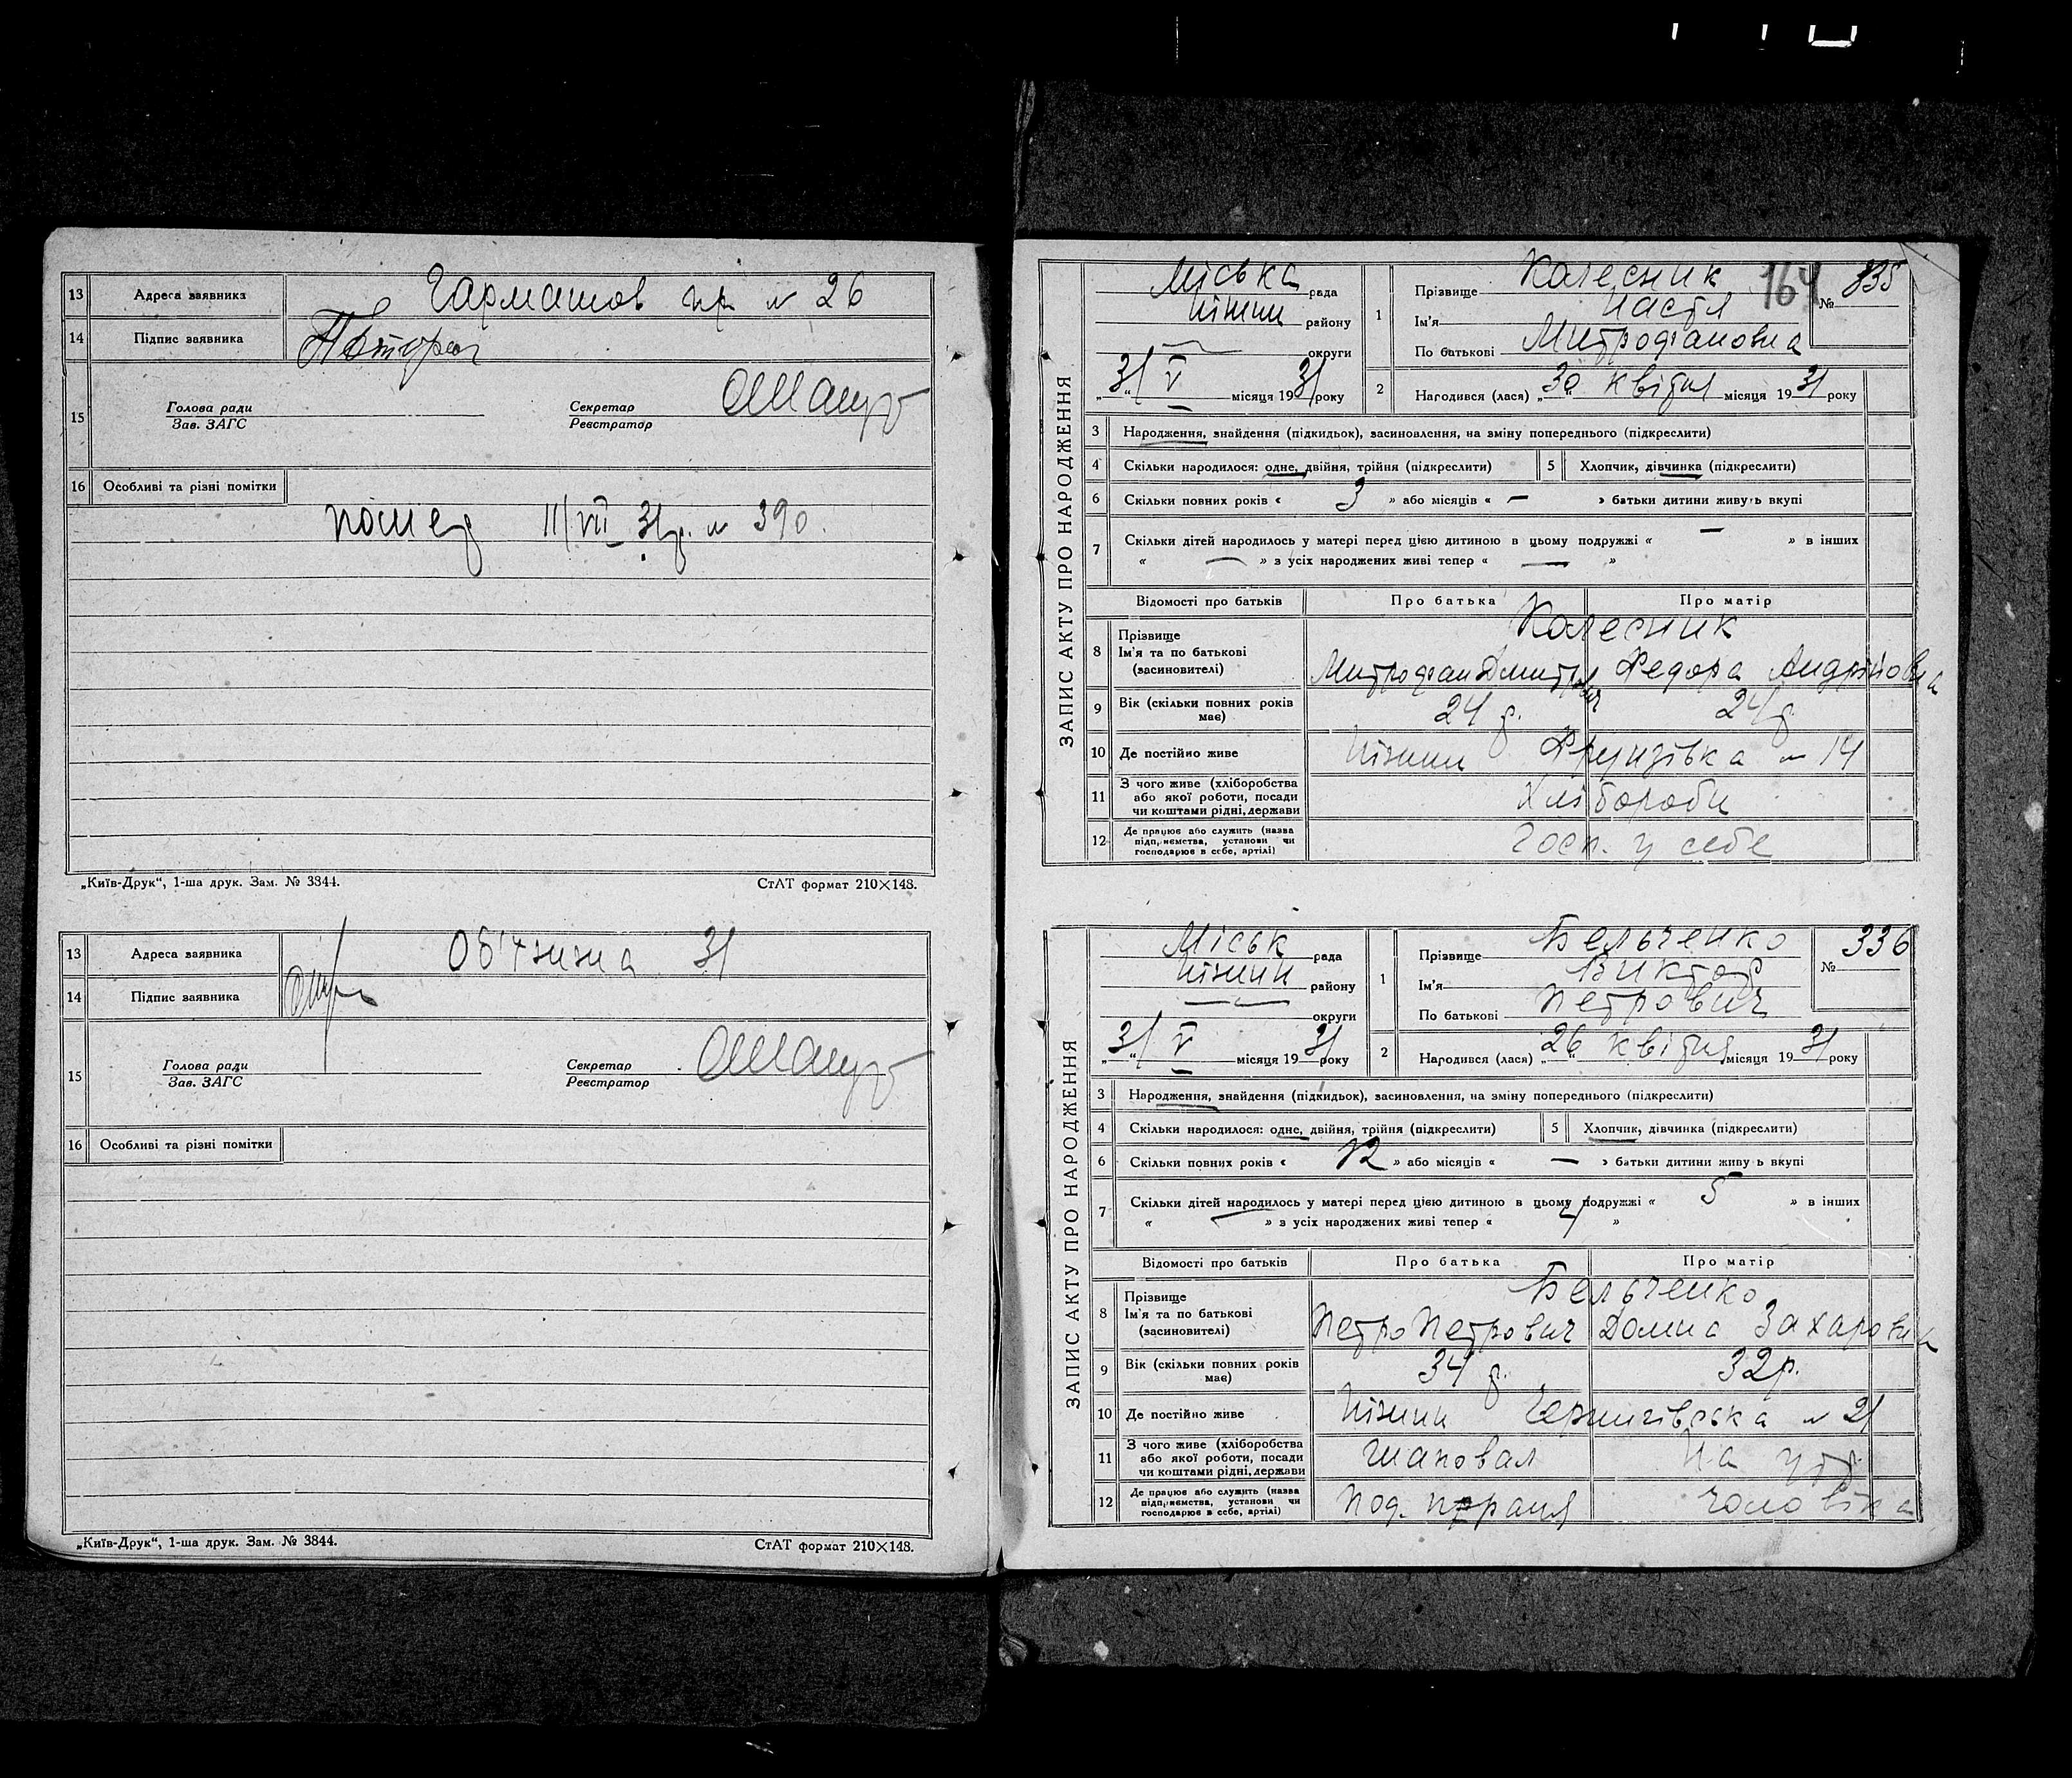 13 Адреса заявника Гармашов пр. № 26
14 Підпис заявника
15 Голова ради Секретар
Зав. ЗАГС Реєстратор
16 Особливі та різні помітки
помер 11/VII 31р. № 390.
„Київ-Друк“, 1-ша друк. Зам. № 3844. СтАТ формат 210×148.
13 Адреса заявника Об'їзжна 31
14 Підпис заявника
15 Голова ради Секретар
Зав. ЗАГС Реєстратор
16 Особливі та різні помітки
„Київ-Друк“, 1-ша друк. Зам. № 3844. СтАТ формат 210×148.
ЗАПИС АКТУ ПРО НАРОДЖЕННЯ
Міська рада
Ніжин району
округи
„31“ V місяця 1931 року
1 Прізвище Колесник
Ім'я Настя
По батькові Митрофановна
164 № 335
2 Народився (лася) „30“ квітня місяця 1931 року
3 Народження, знайдення (підкидьок), засиновлення, на зміну попереднього (підкреслити)
4 Скільки народилося: одне, двійня, трійня (підкреслити) 5 Хлопчик, дівчинка (підкреслити)
6 Скільки повних років « 3 » або місяців « — » батьки дитини живуть вкупі
7 Скільки дітей народилось у матері перед цією дитиною в цьому подружжі « — » в інших
« — » з усіх народжених живі тепер « — »
Відомості про батьків Про батька Про матір
8 Прізвище Колесник
Ім'я та по батькові
(засиновителі) Митрофан Дмитрович Федора Андріївна
9 Вік (скільки повних років має) 24 р. 24 р.
10 Де постійно живе Ніжин Фрунзівка № 14
11 З чого живе (хліборобства
або якої роботи, посади
чи коштами рідні, держави Хлібороби
12 Де працює або служить (назва
підприємства, установи чи
господарює в себе, артілі) Госп. у себе
ЗАПИС АКТУ ПРО НАРОДЖЕННЯ
Міськ рада
Ніжин району
округи
„31“ V місяця 1931 року
1 Прізвище Бельченко
Ім'я Виктор
По батькові Петрович
№ 336
2 Народився (лася) „26“ квітня місяця 1931 року
3 Народження, знайдення (підкидьок), засиновлення, на зміну попереднього (підкреслити)
4 Скільки народилося: одне, двійня, трійня (підкреслити) 5 Хлопчик, дівчинка (підкреслити)
6 Скільки повних років « 12 » або місяців « — » батьки дитини живуть вкупі
7 Скільки дітей народилось у матері перед цією дитиною в цьому подружжі « 5 » в інших
« — » з усіх народжених живі тепер « 4 »
Відомості про батьків Про батька Про матір
8 Прізвище Бельченко
Ім'я та по батькові
(засиновителі) Петро Петрович Домна Захаровна
9 Вік (скільки повних років має) 34 р. 32 р.
10 Де постійно живе Ніжин Чернигівська № 21
11 З чого живе (хліборобства
або якої роботи, посади
чи коштами рідні, держави Шаповал На утр.
12 Де працює або служить (назва
підприємства, установи чи
господарює в себе, артілі) Под. праця чоловіка